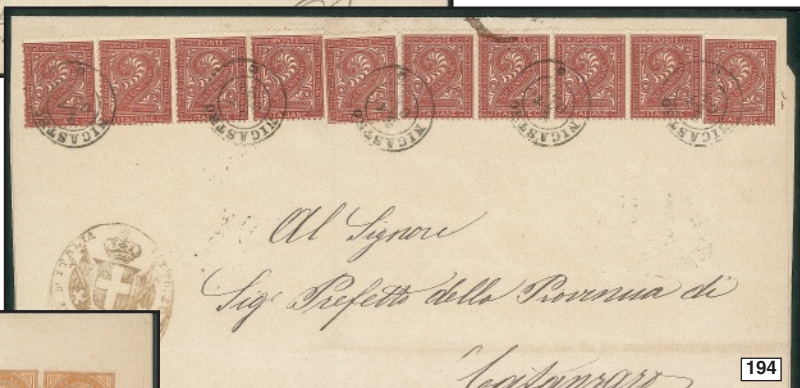 POSTE 2 ITALIANE
NICASTRO
NICASTRO
NICASTRO
NICASTRO
NICASTRO
D'ITALIA
Al Signore
Sig. Prefetto della Provincia di
Catanzaro
194